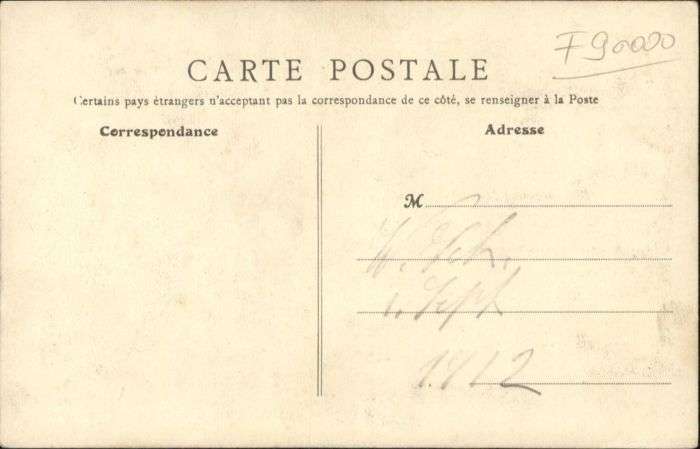 F 90000
CARTE POSTALE
Certains pays étrangers n'acceptant pas la correspondance de ce côté, se renseigner à la Poste
Correspondance
Adresse
M
1. Sept
1912